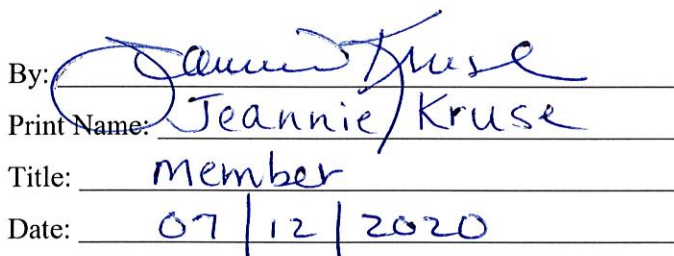 By: Jeannie Kruse
Print Name: Jeannie Kruse
Title: Member
Date: 07/12/2020